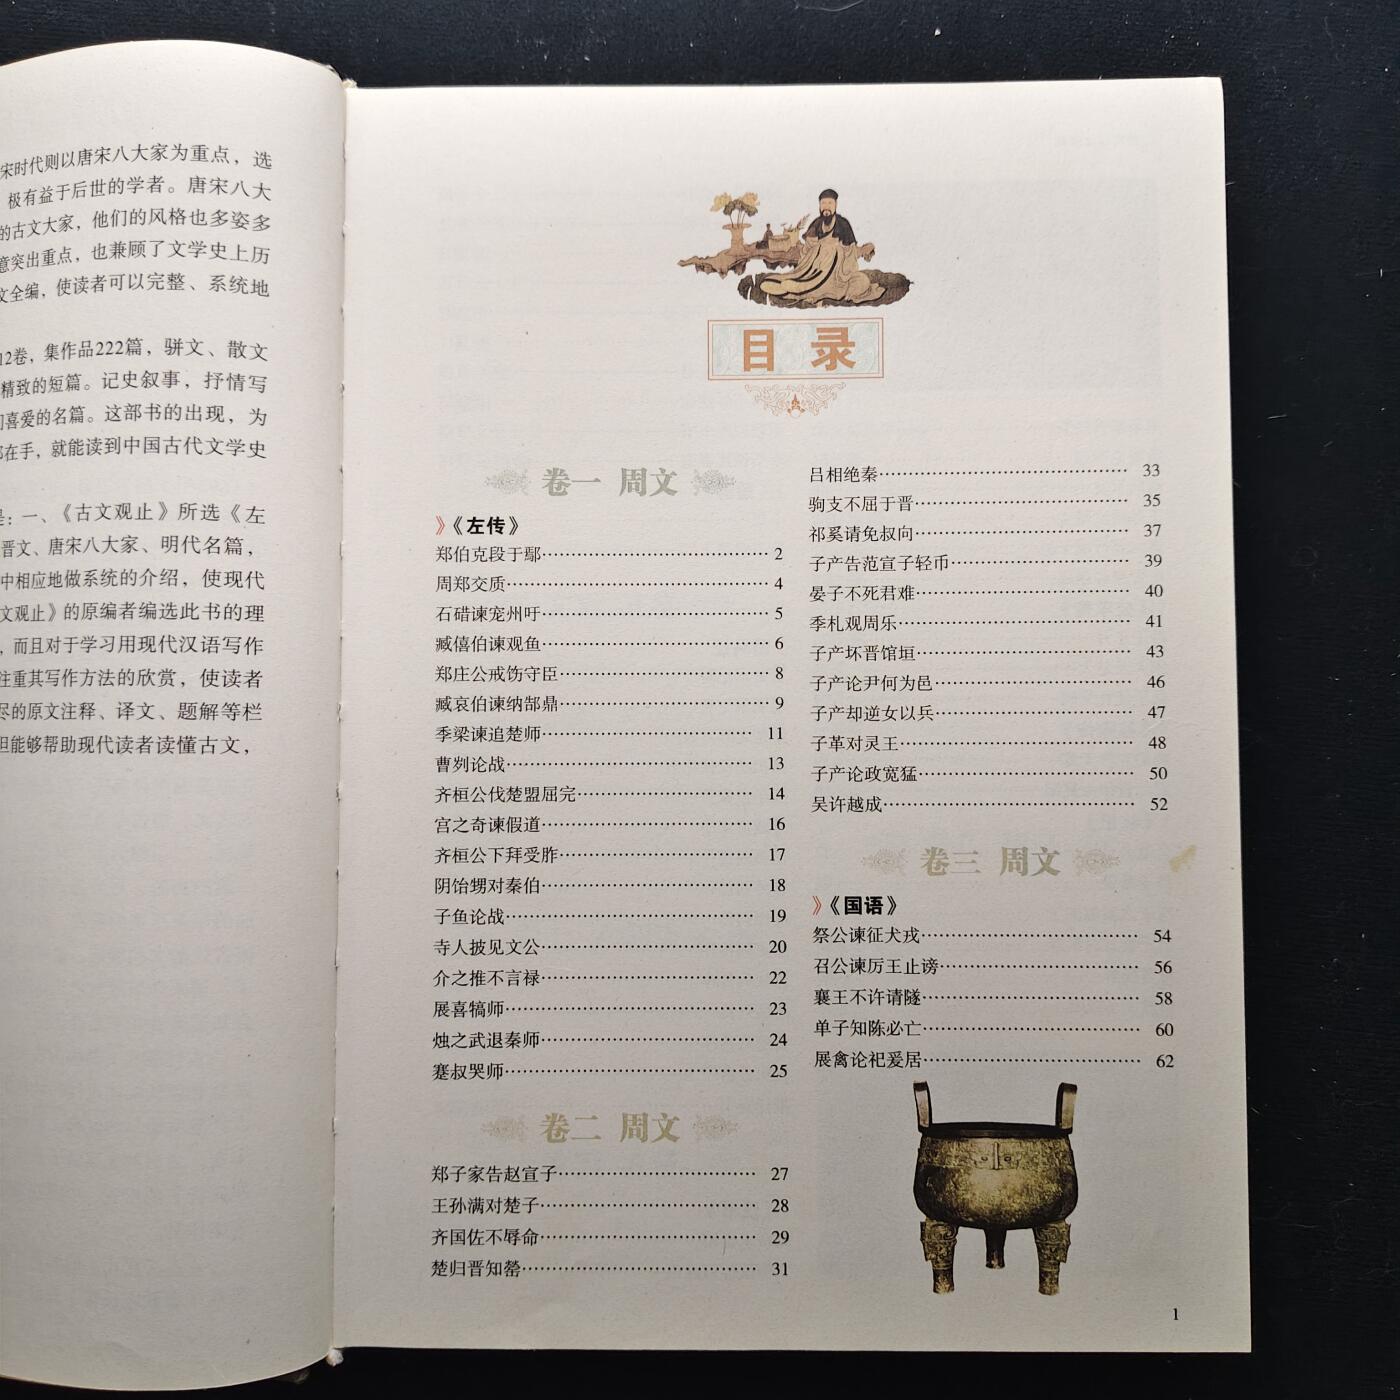 宋时代则以唐宋八大家为重点，选
极有益于后世的学者。唐宋八大
的古文大家，他们的风格也多姿多
意突出重点，也兼顾了文学史上历
文全编，使读者可以完整、系统地
12卷，集作品222篇，骈文、散文
精致的短篇。记史叙事，抒情写
们喜爱的名篇。这部书的出现，为
部在手，就能读到中国古代文学史
是：一、《古文观止》所选《左
晋文、唐宋八大家、明代名篇，
中相应地做系统的介绍，使现代
文观止》的原编者编选此书的理
，而且对于学习用现代汉语写作
注重其写作方法的欣赏，使读者
尽的原文注释、译文、题解等栏
但能够帮助现代读者读懂古文，
目录
卷一 周文
》《左传》
郑伯克段于鄢 2
周郑交质 4
石碏谏宠州吁 5
臧僖伯谏观鱼 6
郑庄公戒饬守臣 8
臧哀伯谏纳郜鼎 9
季梁谏追楚师 11
曹刿论战 13
齐桓公伐楚盟屈完 14
宫之奇谏假道 16
齐桓公下拜受胙 17
阴饴甥对秦伯 18
子鱼论战 19
寺人披见文公 20
介之推不言禄 22
展喜犒师 23
烛之武退秦师 24
蹇叔哭师 25
卷二 周文
郑子家告赵宣子 27
王孙满对楚子 28
齐国佐不辱命 29
楚归晋知罃 31
吕相绝秦 33
驹支不屈于晋 35
祁奚请免叔向 37
子产告范宣子轻币 39
晏子不死君难 40
季札观周乐 41
子产坏晋馆垣 43
子产论尹何为邑 46
子产却逆女以兵 47
子革对灵王 48
子产论政宽猛 50
吴许越成 52
卷三 周文
》《国语》
祭公谏征犬戎 54
召公谏厉王止谤 56
襄王不许请隧 58
单子知陈必亡 60
展禽论祀爰居 62
1